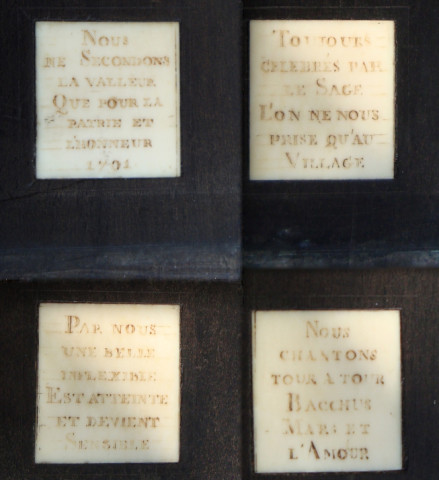 NOUS
NE SECONDONS
LA VALLEUR
QUE POUR LA
PATRIE ET
L'HONNEUR
1701
TOUJOURS
CELEBRÉS PAR
LE SAGE
L'ON NE NOUS
PRISE QU'AU
VILLAGE
PAR NOUS
UNE BELLE
INFLEXIBLE
EST ATTEINTE
ET DEVIENT
SENSIBLE
NOUS
CHANTONS
TOUR A TOUR
BACCHUS
MARS ET
L'AMOUR